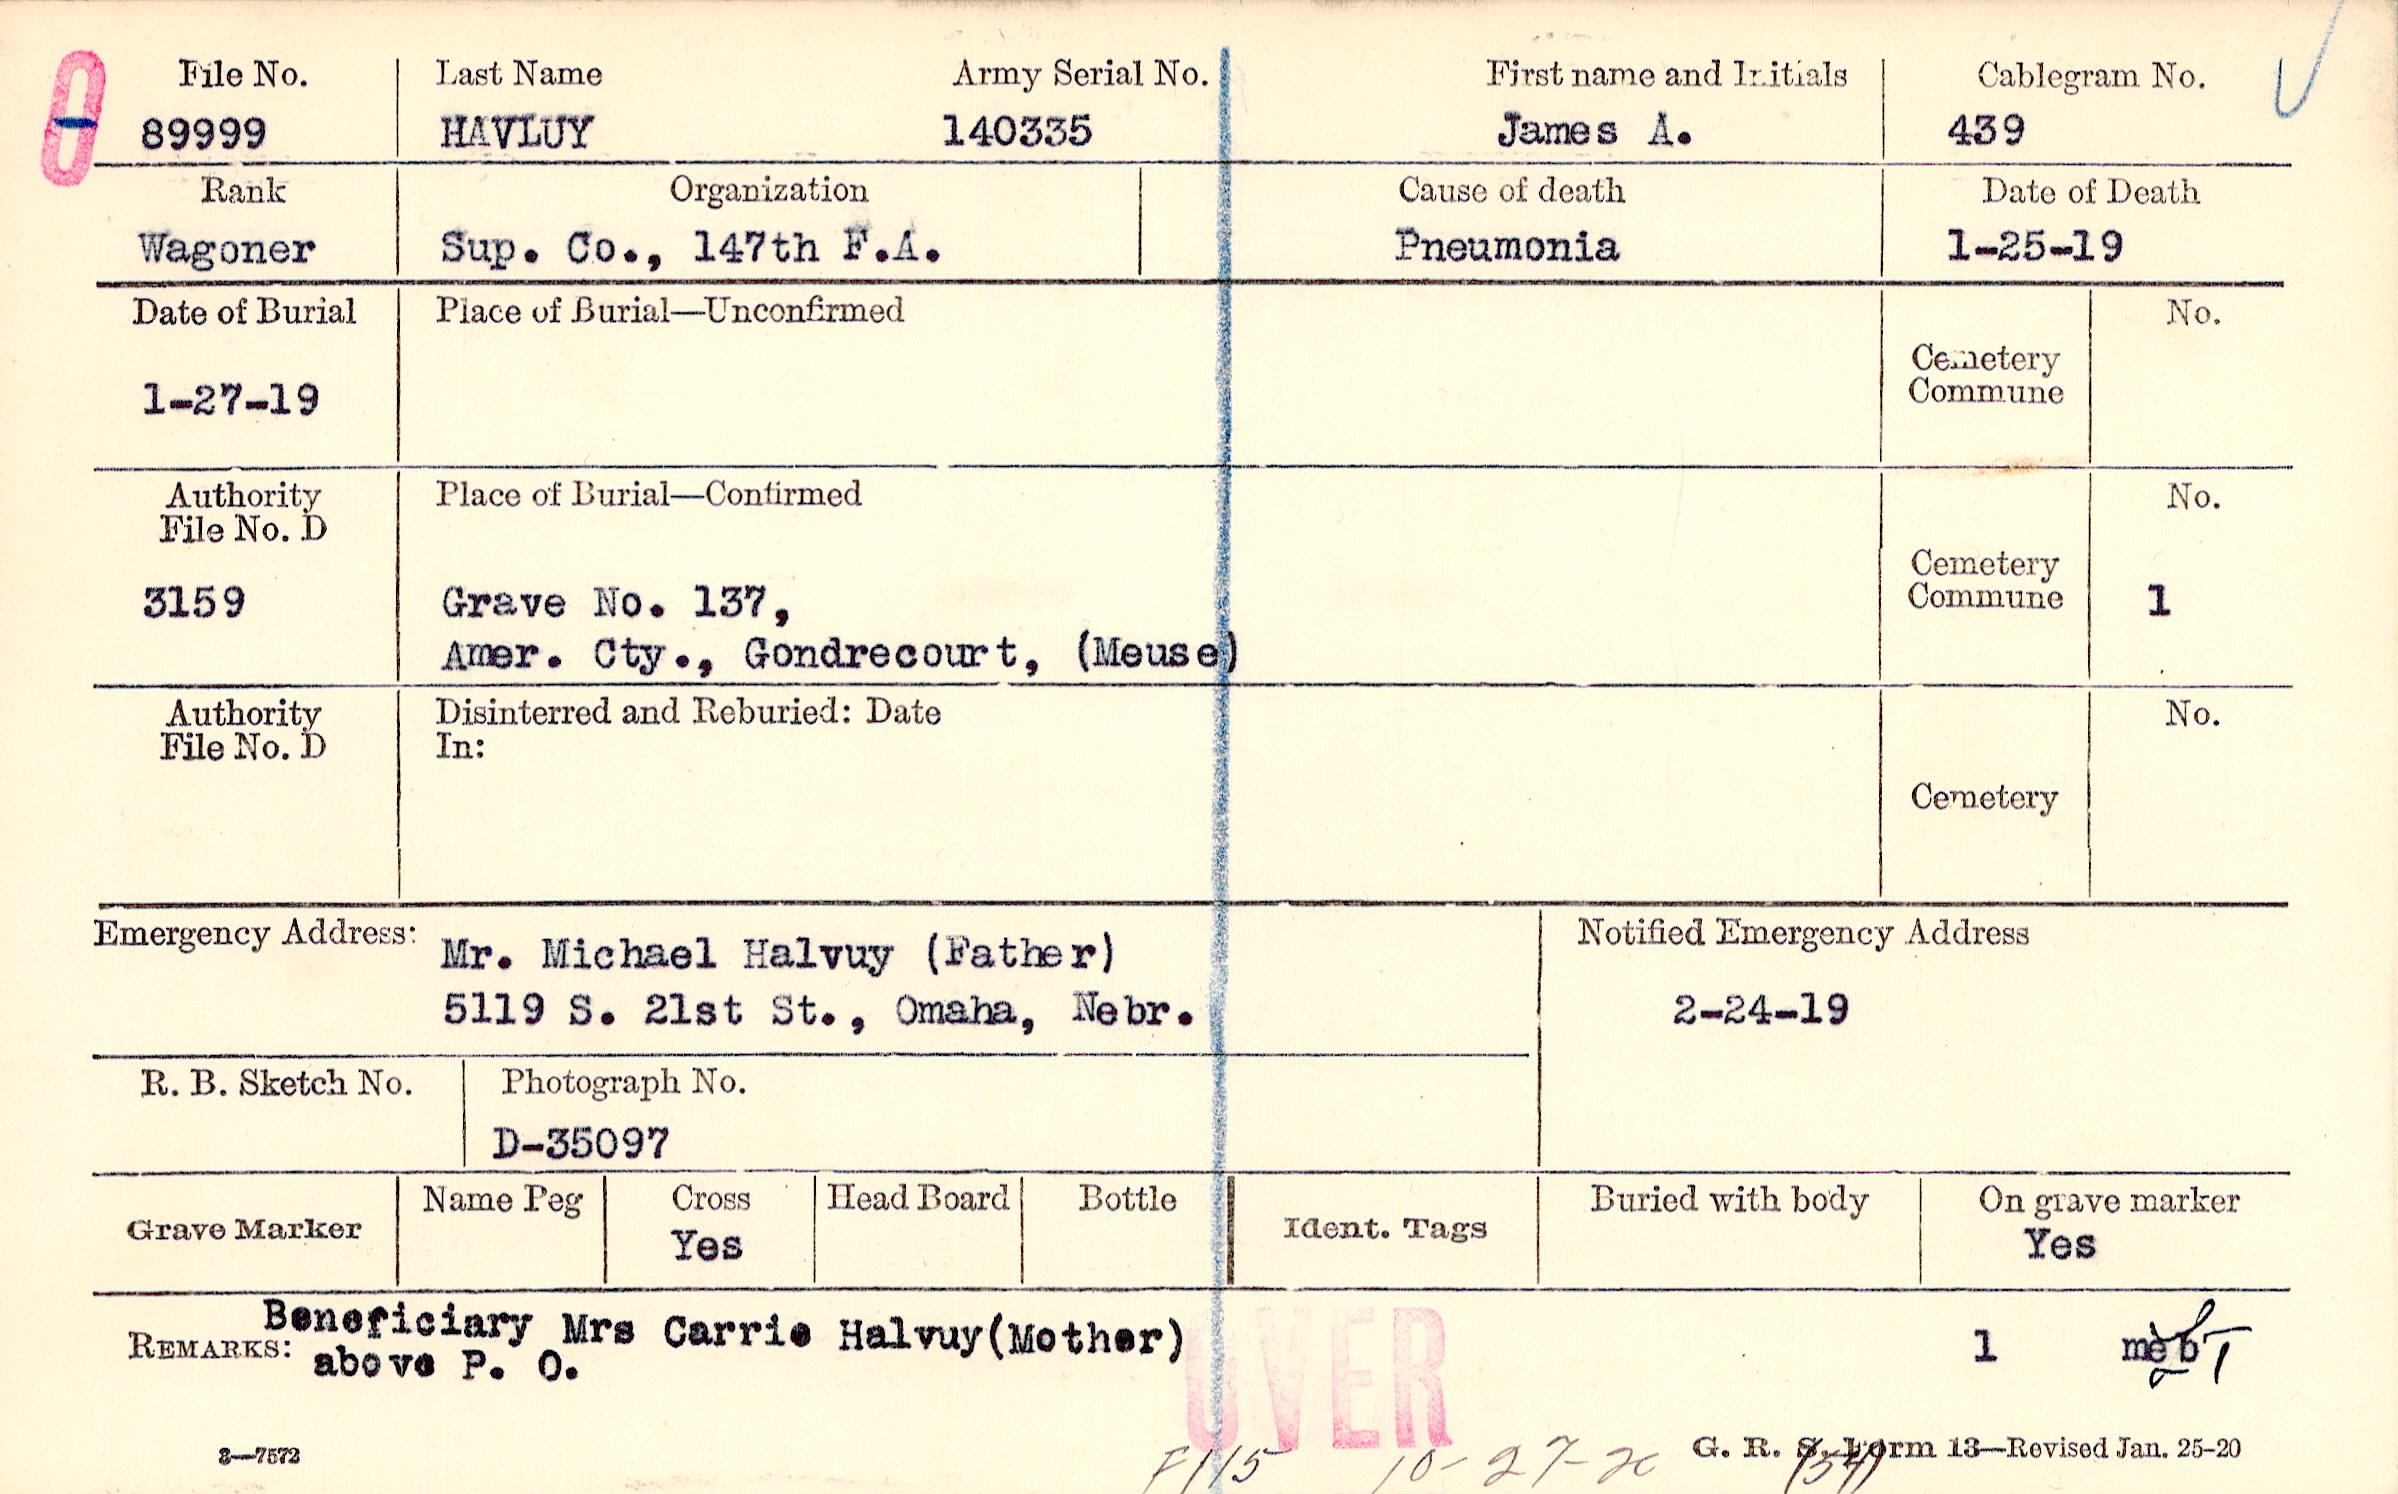 File No. Last Name Army Serial No. First name and Initials Cablegram No.
89999 HAVLUY 140335 James A. 439
Rank Organization Cause of death Date of Death
Wagoner Sup. Co., 147th F.A. Pneumonia 1-25-19
Date of Burial Place of Burial—Unconfirmed No.
Cemetery
Commune
1-27-19
Authority Place of Burial—Confirmed No.
File No. D
Cemetery
Commune
3159 Grave No. 137, 1
Amer. Cty., Gondrecourt, (Meuse)
Authority Disinterred and Reburied: Date No.
File No. D In:
Cemetery
Emergency Address: Notified Emergency Address
Mr. Michael Halvuy (Father)
5119 S. 21st St., Omaha, Nebr. 2-24-19
R. B. Sketch No. Photograph No.
D-35097
Grave Marker Name Peg Cross Head Board Bottle Ident. Tags Buried with body On grave marker
Yes Yes
Beneficiary Mrs Carrie Halvuy(Mother)
REMARKS: above P. O. 1 meb
OVER
3—7572 G. R. S. Form 13—Revised Jan. 25-20
F115 10-27-20